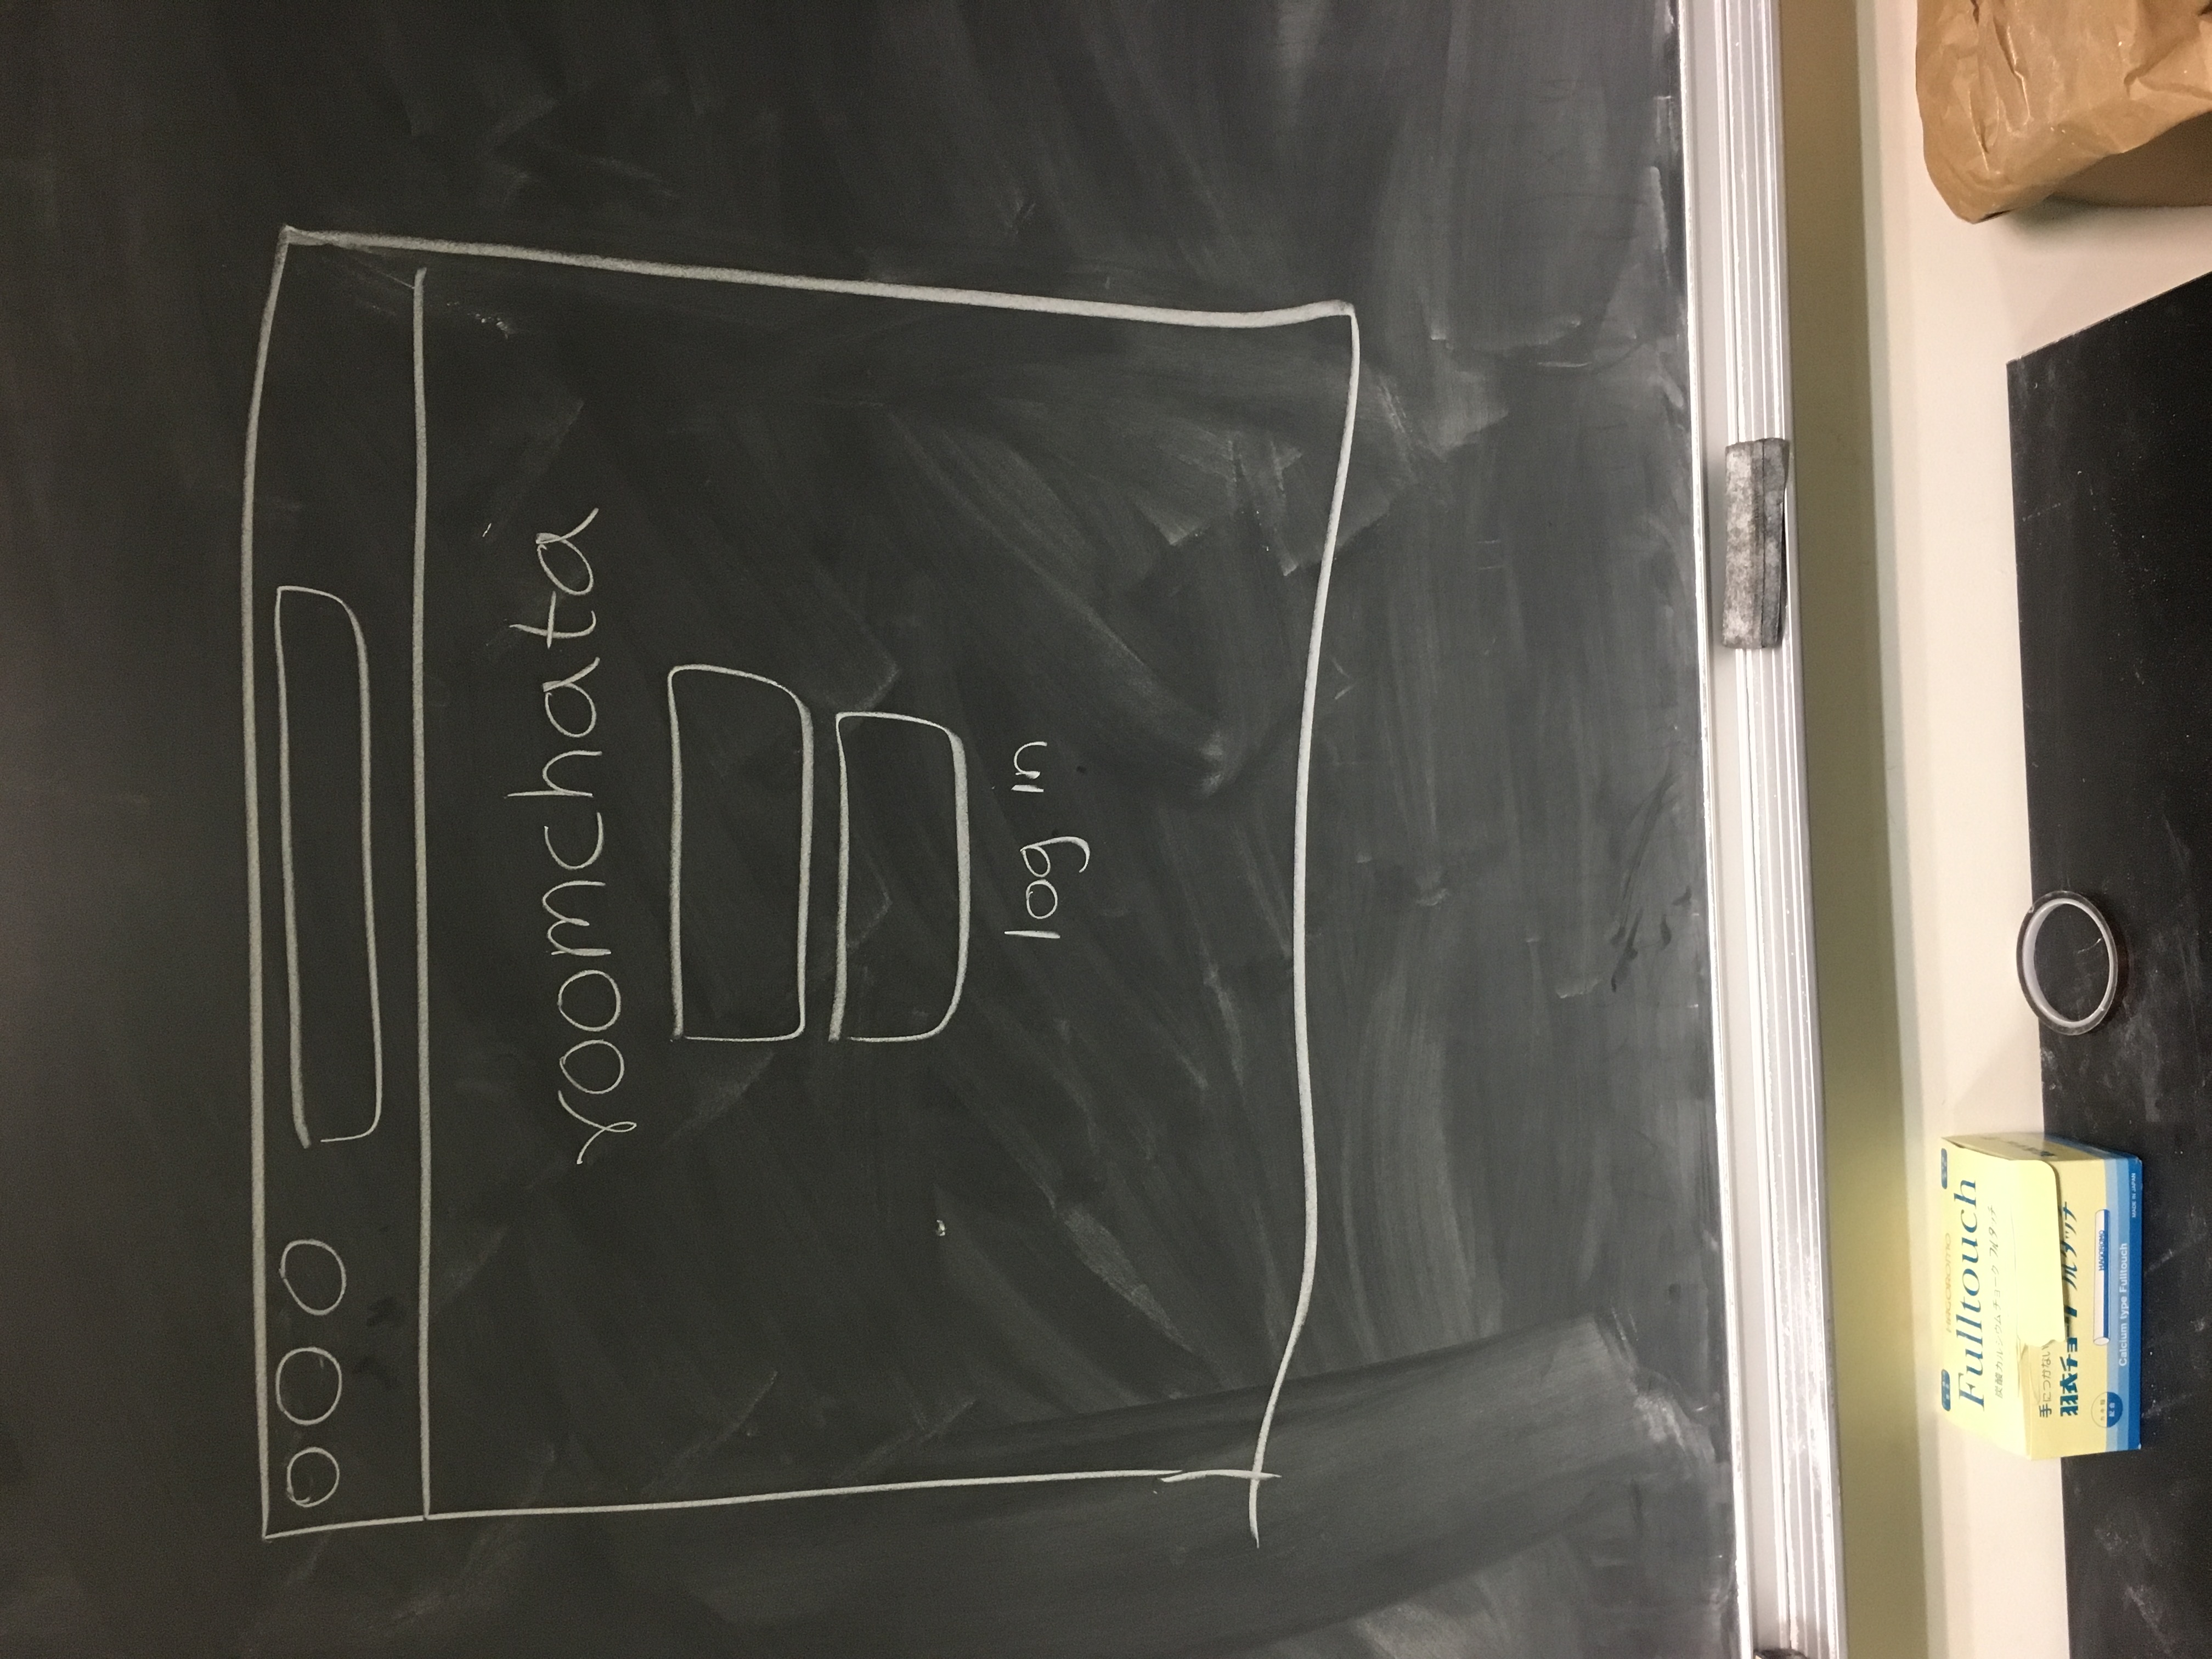 roomchata
log in
HAGOROMO
Fulltouch
炭酸カルシウムチョーク フルタッチ
手につかない
羽衣チョーク フルタッチ
HAGOROMO
Calcium type Fulltouch
MADE IN JAPAN